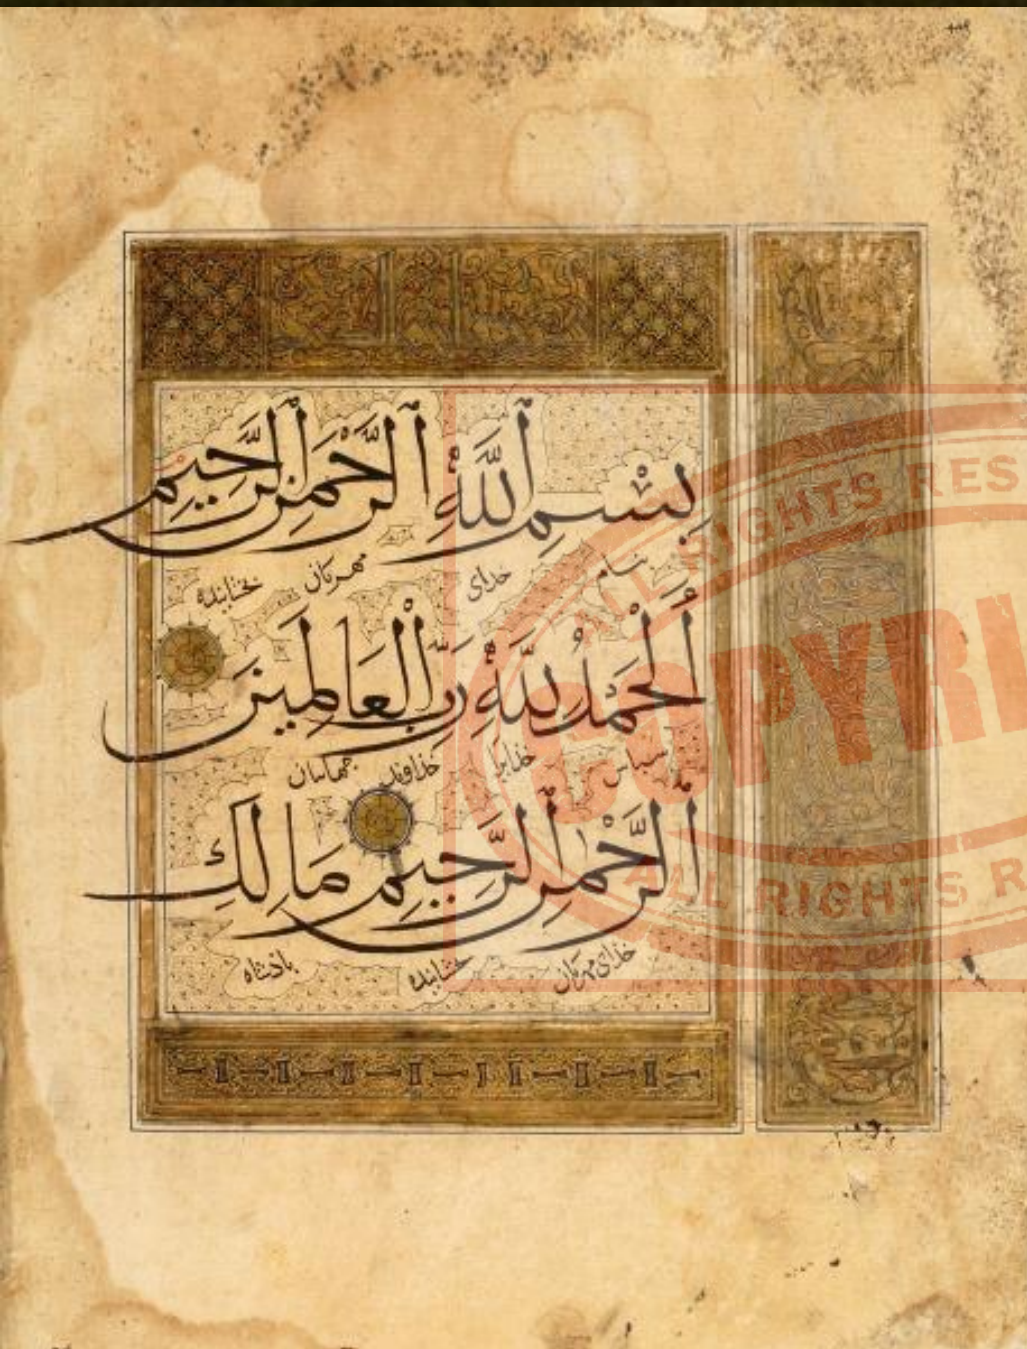 بِسْمِ ٱللَّهِ ٱلرَّحْمٰنِ ٱلرَّحِيمِ
بنام خدای مهربان بخشاینده
أَلْحَمْدُ لِلَّهِ رَبِّ الْعَالَمِينَ
سپاس خدایرا خداوند جهانیان
ٱلرَّحْمٰنِ ٱلرَّحِيمِ مَالِكِ
خدای مهربان بخشاینده پادشاه
ALL RIGHTS RES
COPYRI
ALL RIGHTS R